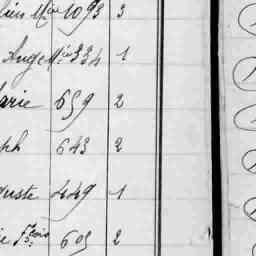 1093 3
Ange 334 1
arie 659 2
ph 643 2
guste 449 1
ie Fçois 605 2